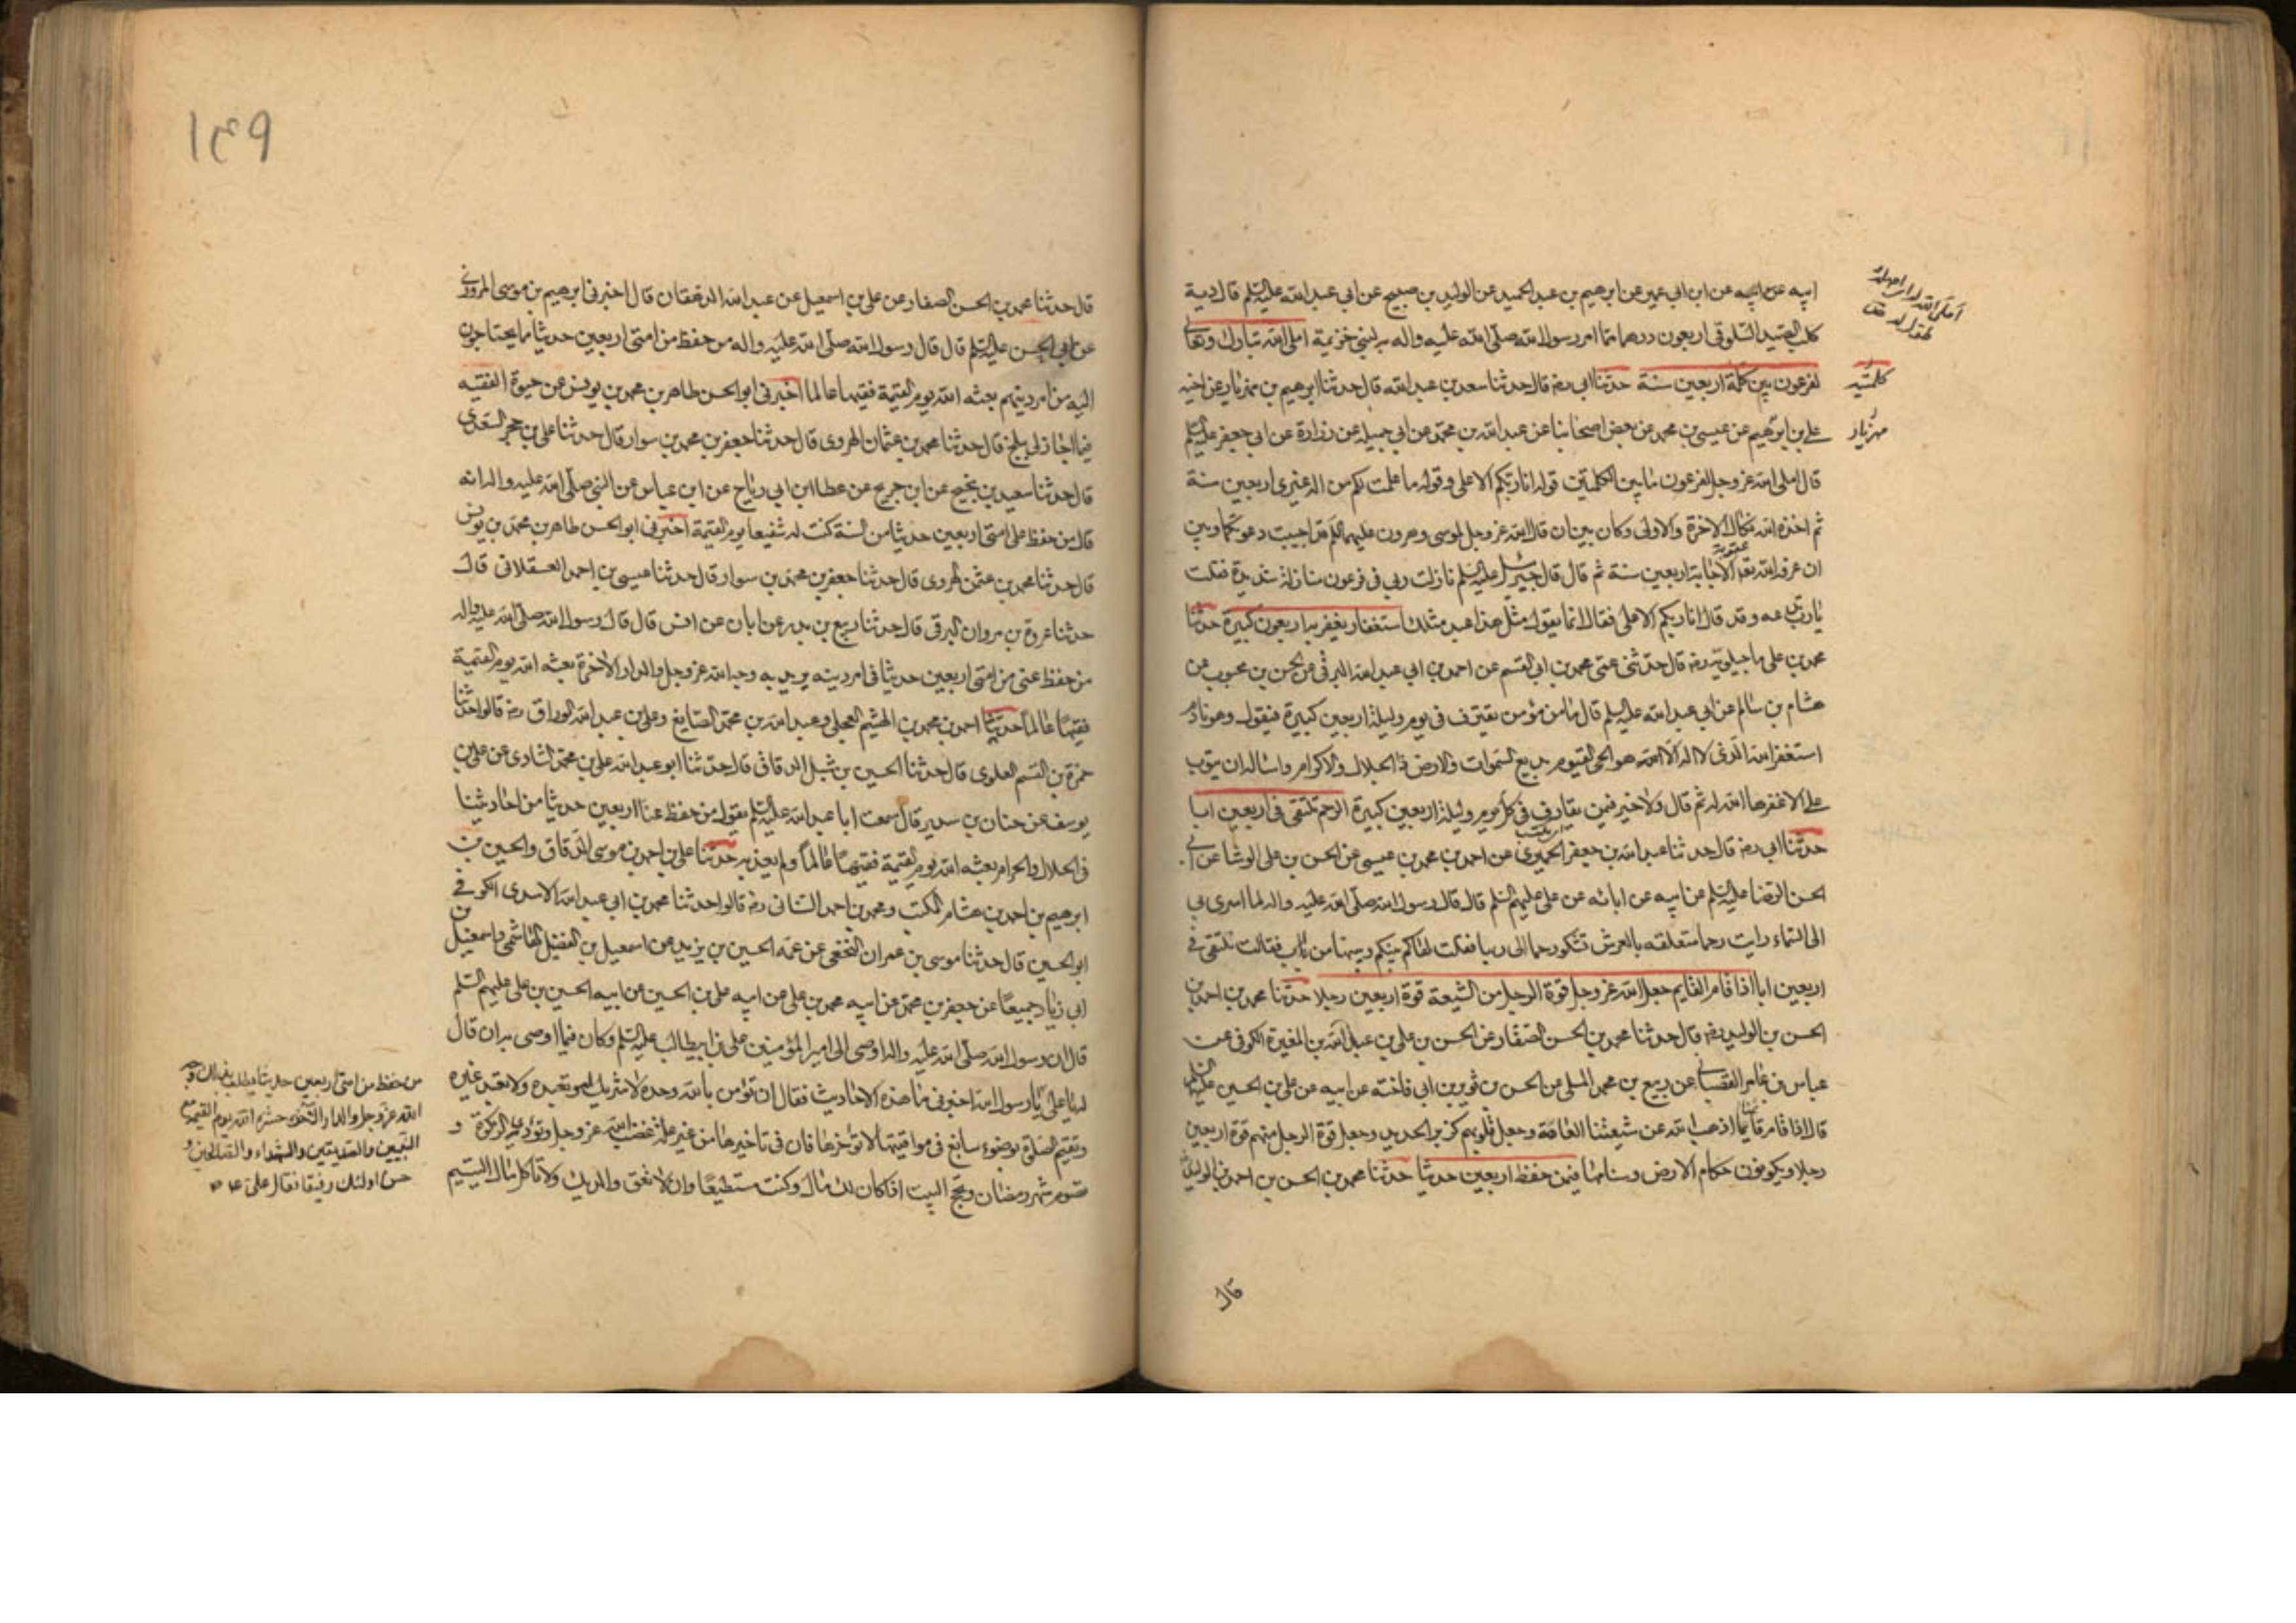 ابيه عن ابيه عن ابن ابي عمير عن ابرهيم بن عبد الحميد عن الوليد بن صبيح عن ابي عبد الله عليه السلم قال دية
كلب الصيد السلوقي اربعون درهما مما امر رسول الله صلى الله عليه واله به لبني خزيمة املى الله تبارك وتعالى
لفرعون بين كلمة اربعين سنة حدثنا ابي رضه قال حدثنا سعد بن عبد الله قال حدثنا ابرهيم بن مهزيار عن اخيه
علي بن ابرهيم عن عيسى بن محمد عن بعض اصحابنا عن عبد الله بن محمد عن ابي جميله عن زرارة عن ابي جعفر عليه السلم
قال املى الله عز وجل لفرعون ما بين الكلمتين قوله انا ربكم الاعلى وقوله ما علمت لكم من اله غيرى اربعين سنة
ثم اخذه الله نكال الاخرة والاولى وكان بين ان قال الله عز وجل لموسى وهرون عليهما السلم قد اجيبت دعوتكما وبين
ان عرفه الله تعالى الاجابة اربعين سنة ثم قال قال جبرئيل عليه السلم نازلت ربي في فرعون منازلة شديدة فقلت
يا رب تدعه وقد قال انا ربكم الاعلى فقال انما يقول مثل هذا عبد مثلك استغفار يغفر به اربعون كبيرة حدثنا
محمد بن علي ماجيلويه رضه قال حدثني عمي محمد بن ابي القسم عن احمد بن ابي عبد الله البرقي عن الحسن بن محبوب عن
هشام بن سالم عن ابي عبد الله عليه السلم قال ما من مؤمن يقترف في يوم وليلة اربعين كبيرة فيقول وهو نادم
استغفر الله الذى لا اله الا الله هو الحى القيوم بديع السموات والارض ذا الجلال والاكرام واساله ان يتوب
على الا غفرها الله له ثم قال ولا خير فيمن يقارف في كل يوم وليلة اربعين كبيرة الرحم تلتقى في اربعين ابا
حدثنا ابي رضه قال حدثنا عبد الله بن جعفر الحميري عن احمد بن محمد بن عيسى عن الحسن بن علي الوشا عن ابي
الحسن الرضا عليه السلم عن ابيه عن ابائه عن علي عليهم السلم قال قال رسول الله صلى الله عليه واله لما اسرى بي
الى السماء رايت رحما متعلقه بالعرش تشكو رحما الى ربها فقلت لها كم بينك وبينها من اب فقالت نلتقى في
اربعين ابا اذا قام القايم جعل الله عز وجل قوة الرجل من الشيعة قوة اربعين رجلا حدثنا محمد بن احمد بن
الحسن بن الوليد رضه قال حدثنا محمد بن الحسن الصفار عن الحسن بن علي بن عبد الله بن المغيرة الكوفى عن
عباس بن عامر القصباني عن ربيع بن محمد المسلي عن الحسن بن ثوير بن ابي فاخته عن ابيه عن علي بن الحسين عليه السلم
قال اذا قام قايمنا اذهب الله عن شيعتنا العاهة وجعل قلوبهم كزبر الحديد وجعل قوة الرجل منهم قوة اربعين
رجلا ويكونون حكام الارض وسنامها فيمن حفظ اربعين حديثا حدثنا محمد بن الحسن بن احمد بن الوليد
قال
كلمتيه
مهزيار
١٤٩
قال حدثنا محمد بن الحسن الصفار عن علي بن اسمعيل عن عبد الله الدهقان قال اخبرني ابرهيم بن موسى المروزى
عن ابي الحسن عليه السلم قال قال رسول الله صلى الله عليه واله من حفظ من امتى اربعين حديثا مما يحتاجون
اليه من امر دينهم بعثه الله يوم القيمة فقيها عالما اخبرني ابو الحسن طاهر بن محمد بن يونس عن حيوة الفقيه
فيما اجازلي ببلخ قال حدثنا محمد بن عثمان الهروى قال حدثنا جعفر بن محمد بن سوار قال حدثنا علي بن حجر السعدى
قال حدثنا سعيد بن نجيح عن ابن جريح عن عطا ابن ابي رباح عن ابن عباس عن النبي صلى الله عليه واله انه
قال من حفظ على امتى اربعين حديثا من السنة كنت له شفيعا يوم القيمة اخبرني ابو الحسن طاهر بن محمد بن يونس
قال حدثنا محمد بن عثمن الهروى قال حدثنا جعفر بن محمد بن سوار قال حدثنا عيسى بن احمد العسقلانى قال
حدثنا عروة بن مروان البرقى قال حدثنا ربيع بن بدر عن ابان عن انس قال قال رسول الله صلى الله عليه واله
من حفظ عني من امتى اربعين حديثا في امر دينه يريد به وجه الله عز وجل والدار الاخرة بعثه الله يوم القيمة
فقيها عالما حدثنا احمد بن محمد بن الهيثم العجلي وعبد الله بن محمد الصايغ وعلي بن عبد الله الوراق رضه قالوا حدثنا
حمزة بن القسم العلوى قال حدثنا الحسين بن شبل الدقاق قال حدثنا ابو عبد الله علي بن محمد الشادى عن علي بن
يوسف عن حنان بن سدير قال سمعت ابا عبد الله عليه السلم يقول من حفظ عنا اربعين حديثا من احاديثنا
في الحلال والحرام بعثه الله يوم القيمة فقيها عالما ولم يعذبه حدثنا علي بن احمد بن موسى الدقاق والحسين بن
ابرهيم بن احمد بن هشام المكتب ومحمد بن احمد السنانى رضه قالوا حدثنا محمد بن ابي عبد الله الاسدى الكوفي
ابو الحسين قال حدثنا موسى بن عمران النخعى عن عمه الحسين بن يزيد عن اسمعيل بن الفضل الهاشمى واسمعيل بن
ابي زياد جميعا عن جعفر بن محمد عن ابيه محمد بن علي عن ابيه علي بن الحسين عن ابيه الحسين بن علي عليهم السلم
قال ان رسول الله صلى الله عليه واله اوصى الى امير المؤمنين علي بن ابيطالب عليه السلم وكان فيما اوصى به ان قال
له يا علي يا رسول الله اخبرني ما هذه الاحاديث فقال ان تؤمن بالله وحده لا شريك له وتعبده ولا تعبد غيره
وتقيم الصلوة بوضوء سابغ في مواقيتها لا تؤخرها فان في تاخيرها من غير علة غضب الله عز وجل وتؤدى الزكوة و
تصوم شهر رمضان وتحج البيت اذا كان لك مال وكنت مستطيعا وان لا تعق والديك ولا تاكل مال اليتيم
من حفظ من امتى اربعين حديثا يطلب بذلك وجه
الله عز وجل والدار الاخرة حشره الله يوم القيمة مع
النبيين والصديقين والشهداء والصالحين و
حسن اولئك رفيقا فقال علي